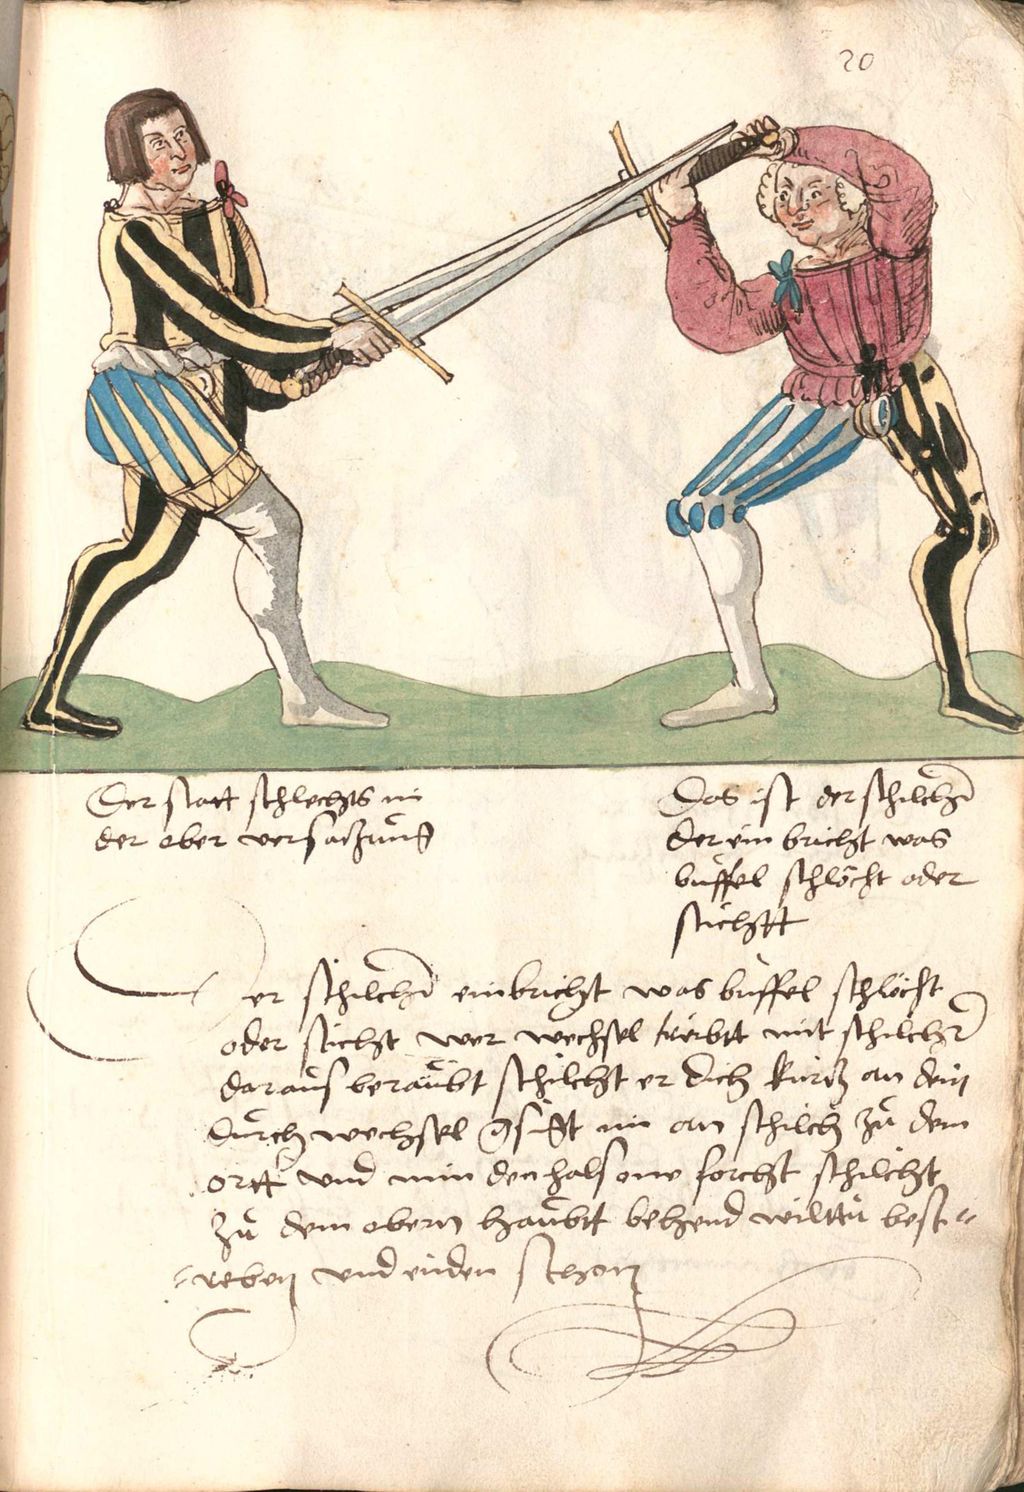 20
Der statt schlechts in
der ober versaczung
Das ist der schilcher
der ein bricht was
buffel schlöcht oder
stichtt
er schilcher einbricht was buffel schlöcht
oder sticht wer wechsel treibtt mit schilcher
daraus beraubt schilcht er dich kurtz an dein
durch wechsel gsigt im an schilch zu dem
ortt und nim den hals one forcht schilcht
zu dem obern haubtt behend wilttu best
reben und enden schon